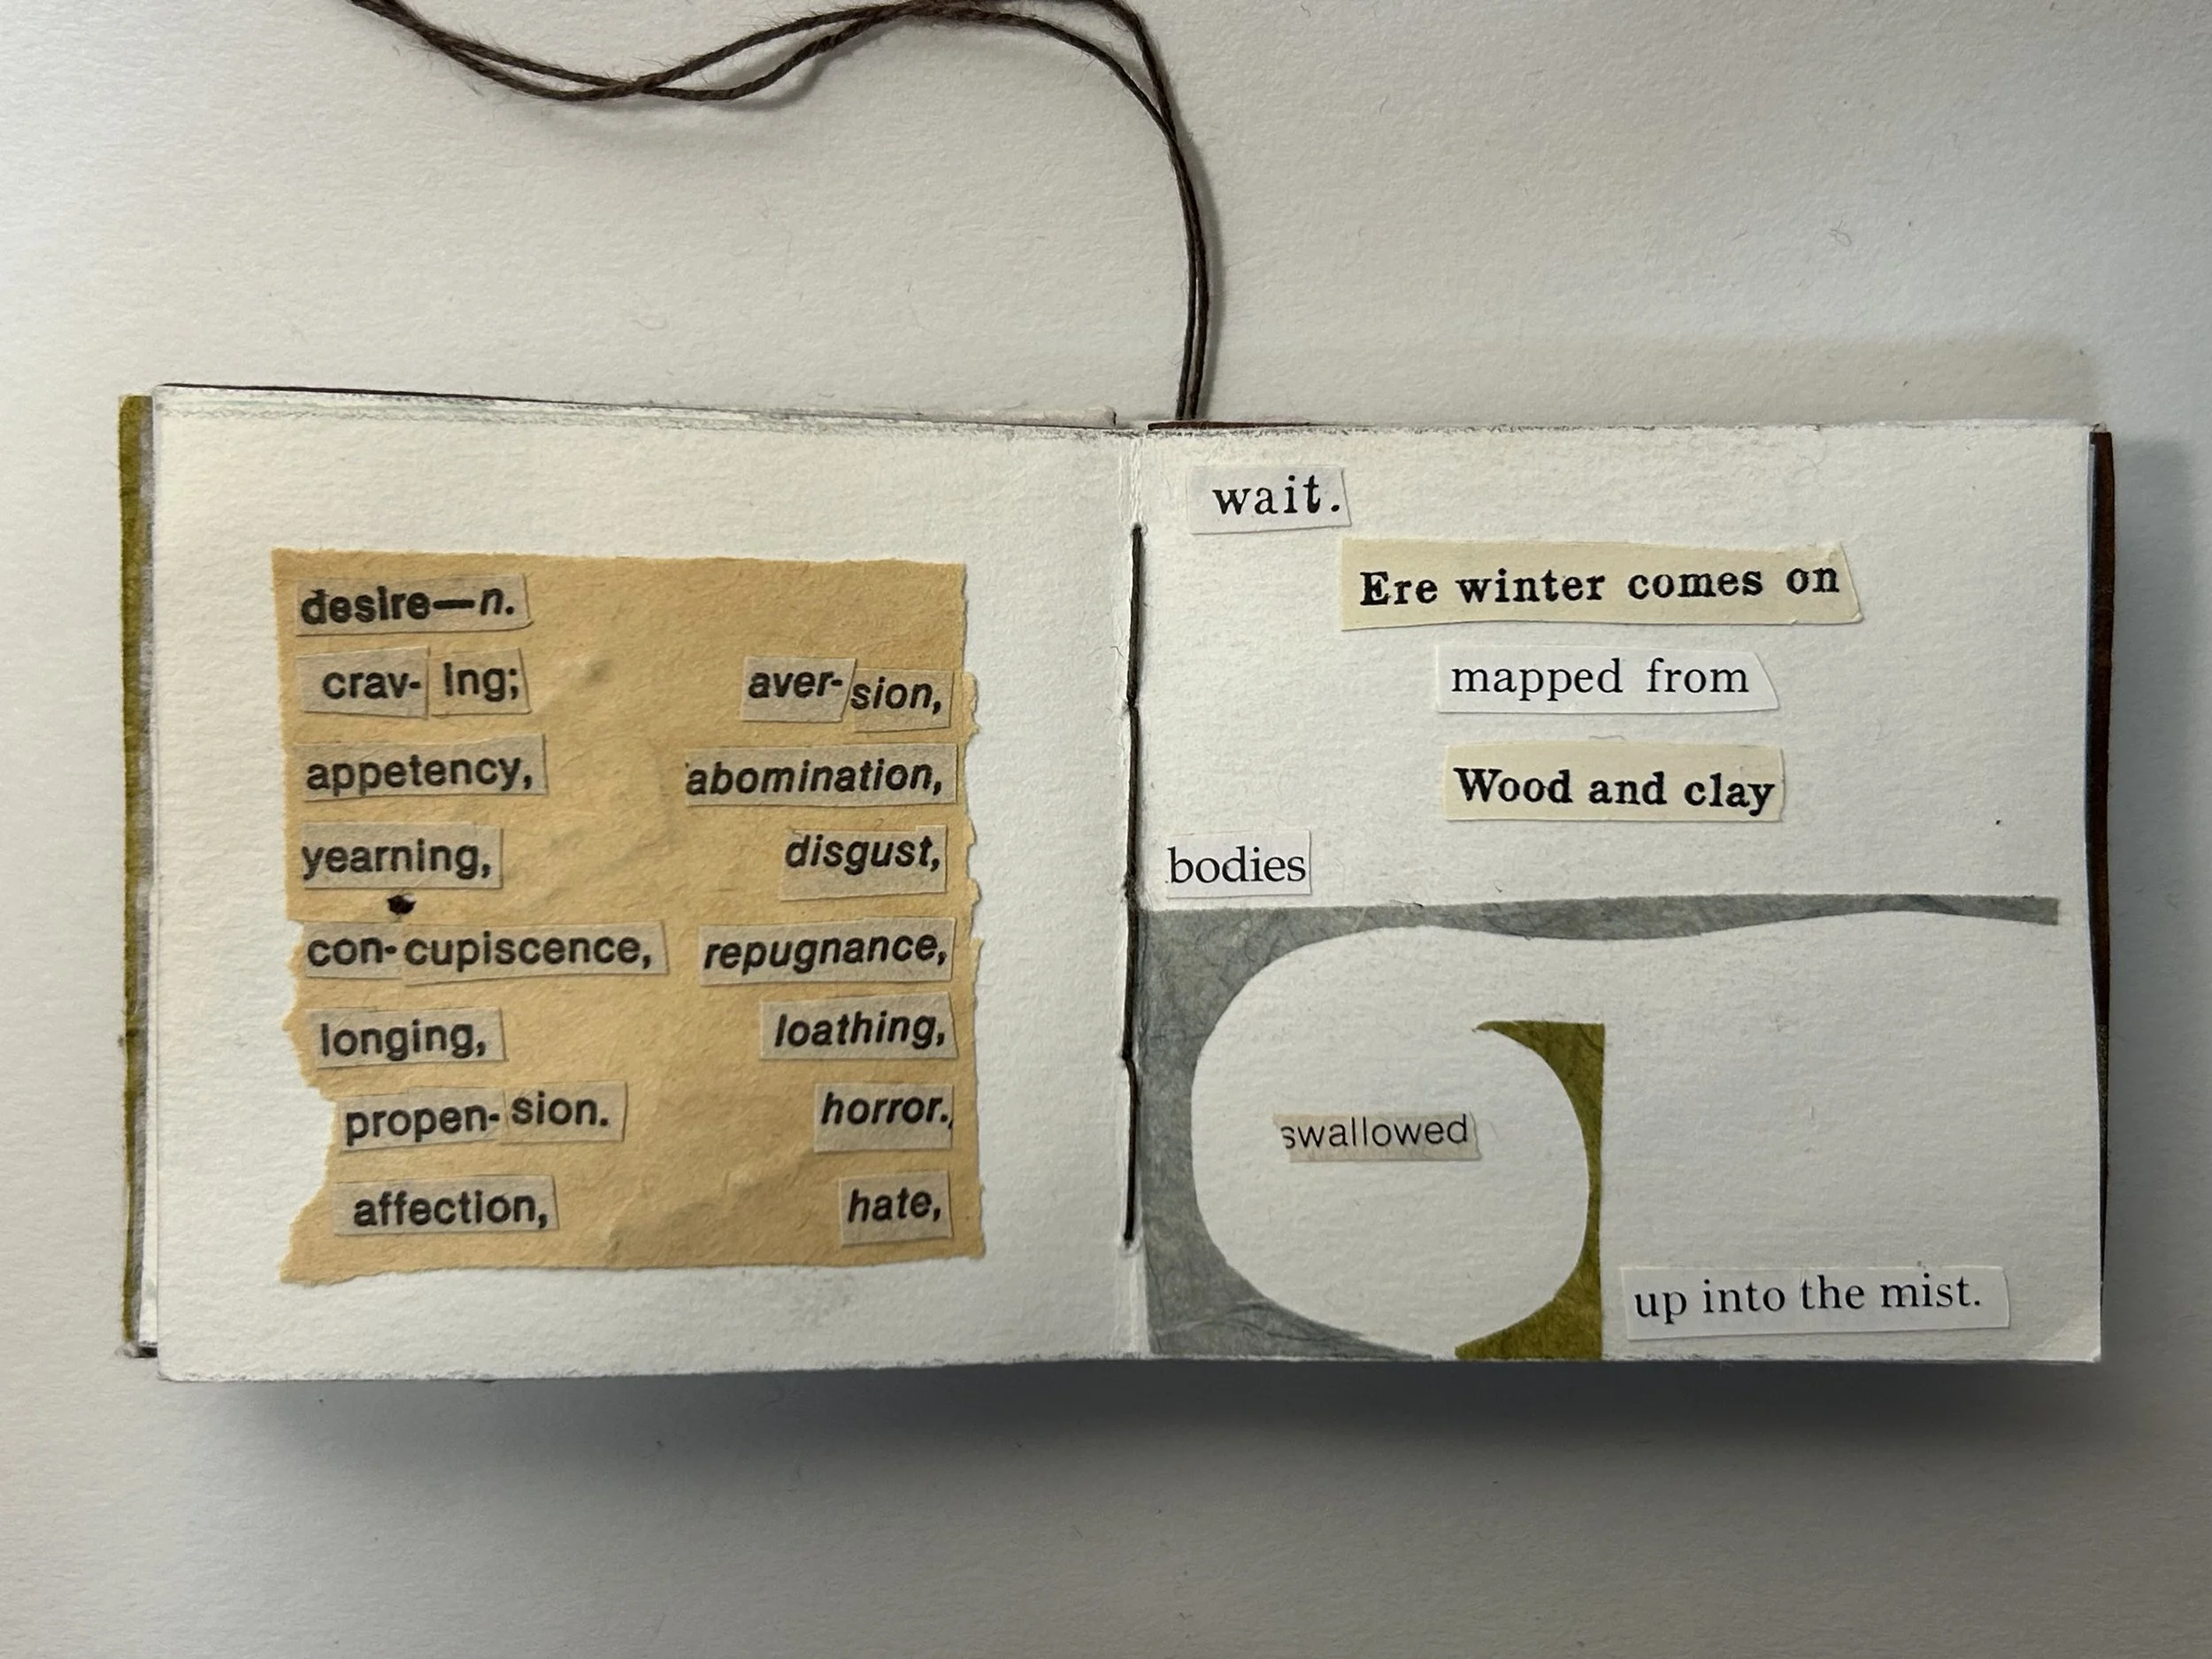 desire—n.
crav-ing; aver-sion,
appetency, abomination,
yearning, disgust,
con-cupiscence, repugnance,
longing, loathing,
propen-sion. horror.,
affection, hate,
wait.
Ere winter comes on
mapped from
Wood and clay
bodies
swallowed
up into the mist.